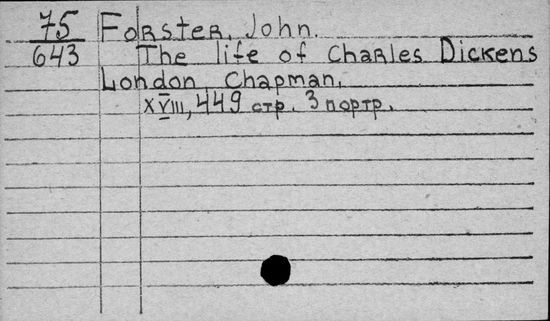 75 Forster, John.
643 The life of Charles Dickens
London Chapman.
XVIII, 449 стр. 3 портр.